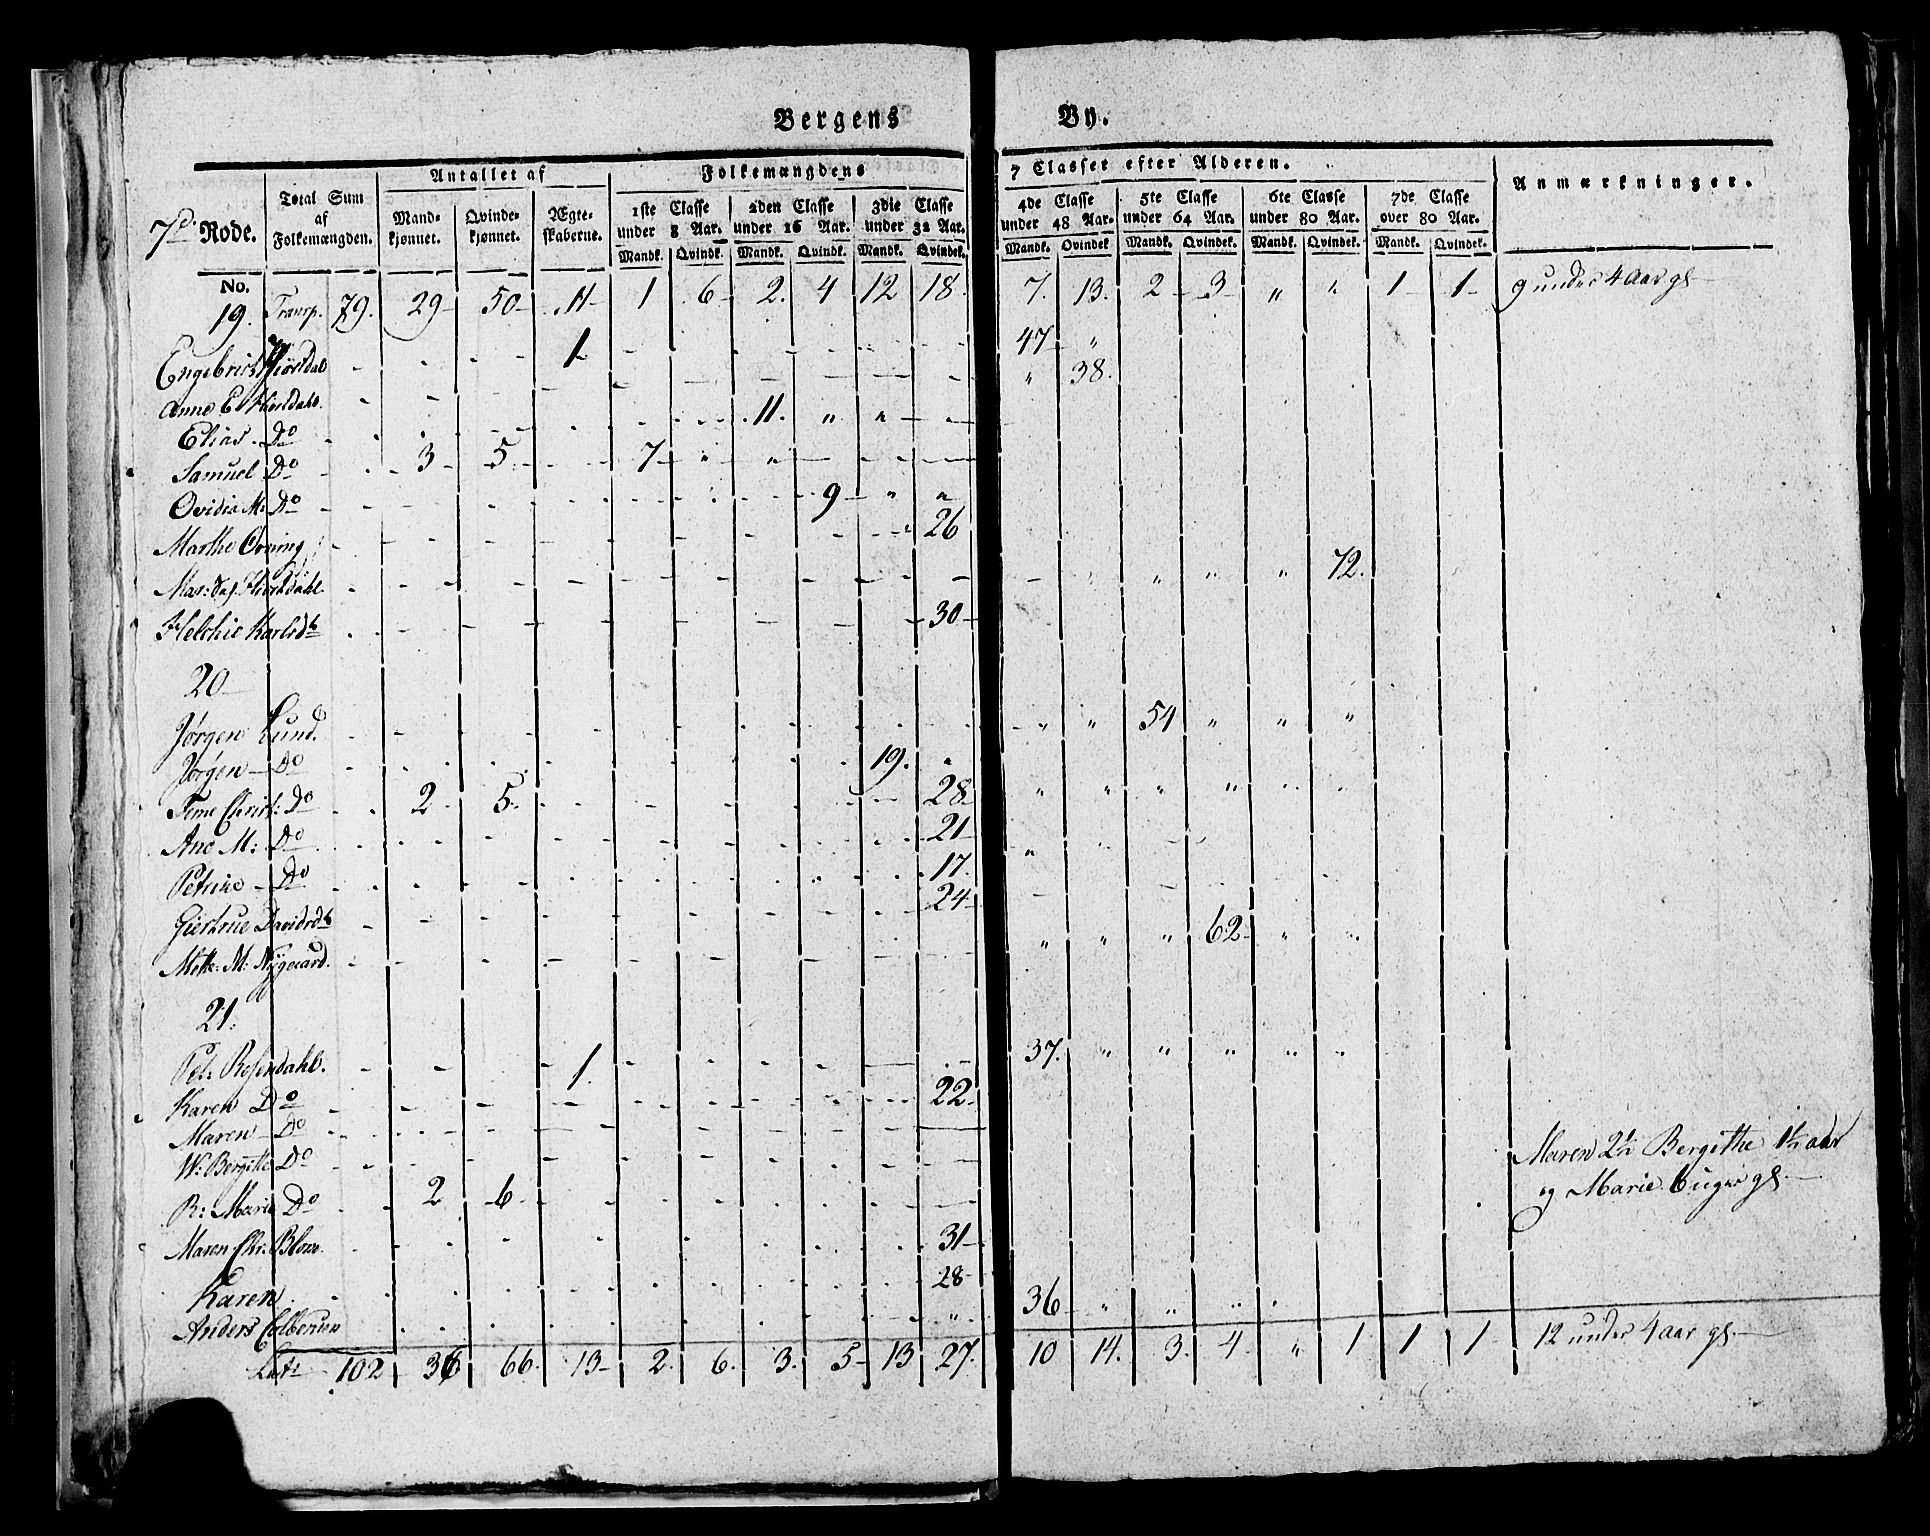 Bergens By.
Antallet af Folkemængdens 7 Classer efter Alderen.
7de Rode. Total Sum af Folkemængden. Mandkjønnet. Qvindekjønnet. Ægteskaberne. 1ste Classe under 8 Aar. 2den Classe under 16 Aar. 3die Classe under 32 Aar. 4de Classe under 48 Aar. 5te Classe under 64 Aar. 6te Classe under 80 Aar. 7de Classe over 80 Aar. Anmærkninger.
Mandk. Qvindk. Mandk. Qvindk. Mandk. Qvindek. Mandk. Qvindek Mandk. Qvindk. Mandk. Qvindek. Mandk. Qvindek.
No.
19. Transp. 79. 29 50 11 1 6 2. 4 12 18. 7. 13. 2 3 " " 1 1 9 under 4 Aar gl
Engebrict Hiortdal 1 47 "
Anne E. Hiortdahl. " 38.
Elias. Do 11. " "
Samuel Do 3 5 7 " "
Ovidia M: Do 9 " "
Marthe Orning 26
Mar: Hiortdahl. " " " " 72.
Helchie Karlsdt 30
20
Jørgen Lund. " " 54 " " "
Jørgen Do 19. "
Christ: Do 2 5 28 " " " " "
Ane M: Do 21
Petrine Do 17.
Giertrue Davidsdt 24
Mette M: Nygaard. " " " 62 " "
21.
Pet: Rosendahl. 1. 37. " " " " "
Karen Do 22
Maren Do
W: Bergithe Do Maren 2½ Bergithe 1½ aar
R: Marie Do 2 6 og Marie 6 uger gl.
Maren Chr. Blowe. 31
Karen 28
Anders Colbensen " 36 " " " "
Lat: 102 36 66. 13 2. 6. 3. 5 13 27. 10 14. 3. 4. " 1 1 1 12 under 4 aar gl.